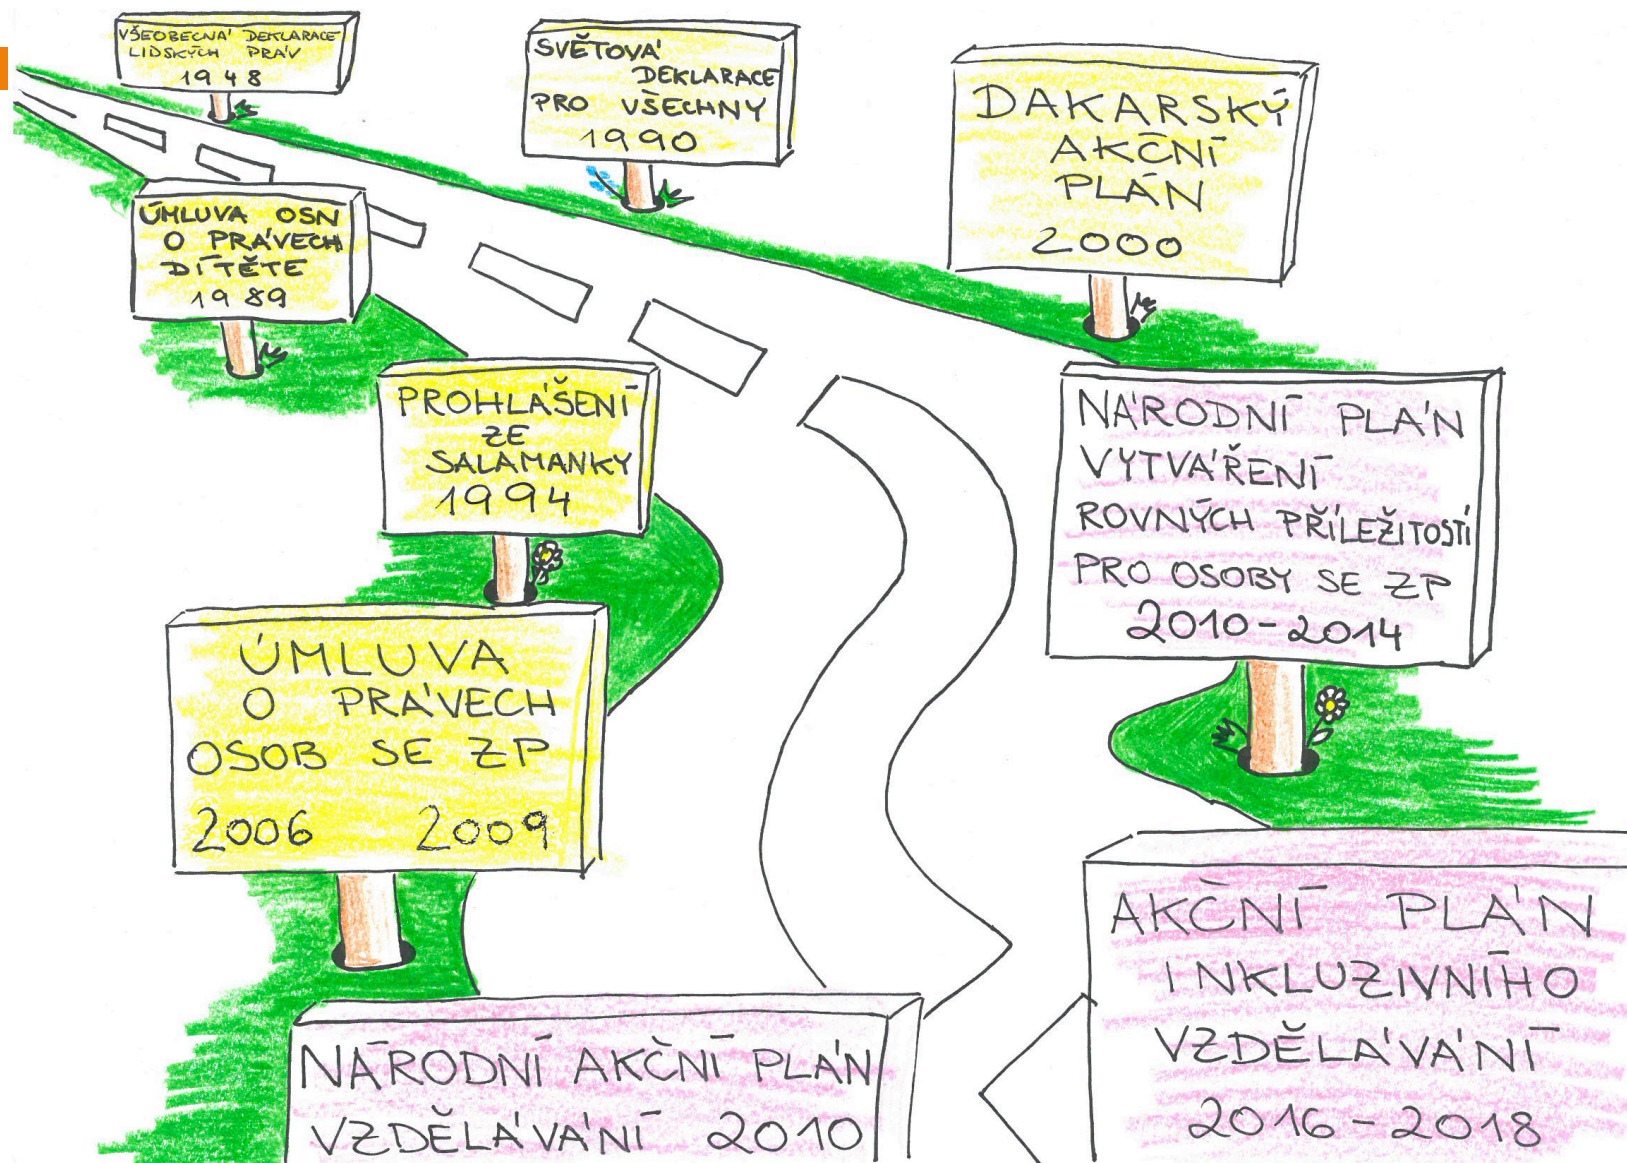 VŠEOBECNÁ DEKLARACE
LIDSKÝCH PRÁV
1948
SVĚTOVÁ
DEKLARACE
PRO VŠECHNY
1990
DAKARSKÝ
AKČNÍ
PLÁN
2000
ÚMLUVA OSN
O PRÁVECH
DÍTĚTE
1989
PROHLÁŠENÍ
ZE
SALAMANKY
1994
NÁRODNÍ PLÁN
VYTVÁŘENÍ
ROVNÝCH PŘÍLEŽITOSTÍ
PRO OSOBY SE ZP
2010-2014
ÚMLUVA
O PRÁVECH
OSOB SE ZP
2006 2009
AKČNÍ PLÁN
INKLUZIVNÍHO
VZDĚLÁVÁNÍ
2016-2018
NÁRODNÍ AKČNÍ PLÁN
VZDĚLÁVÁNÍ 2010